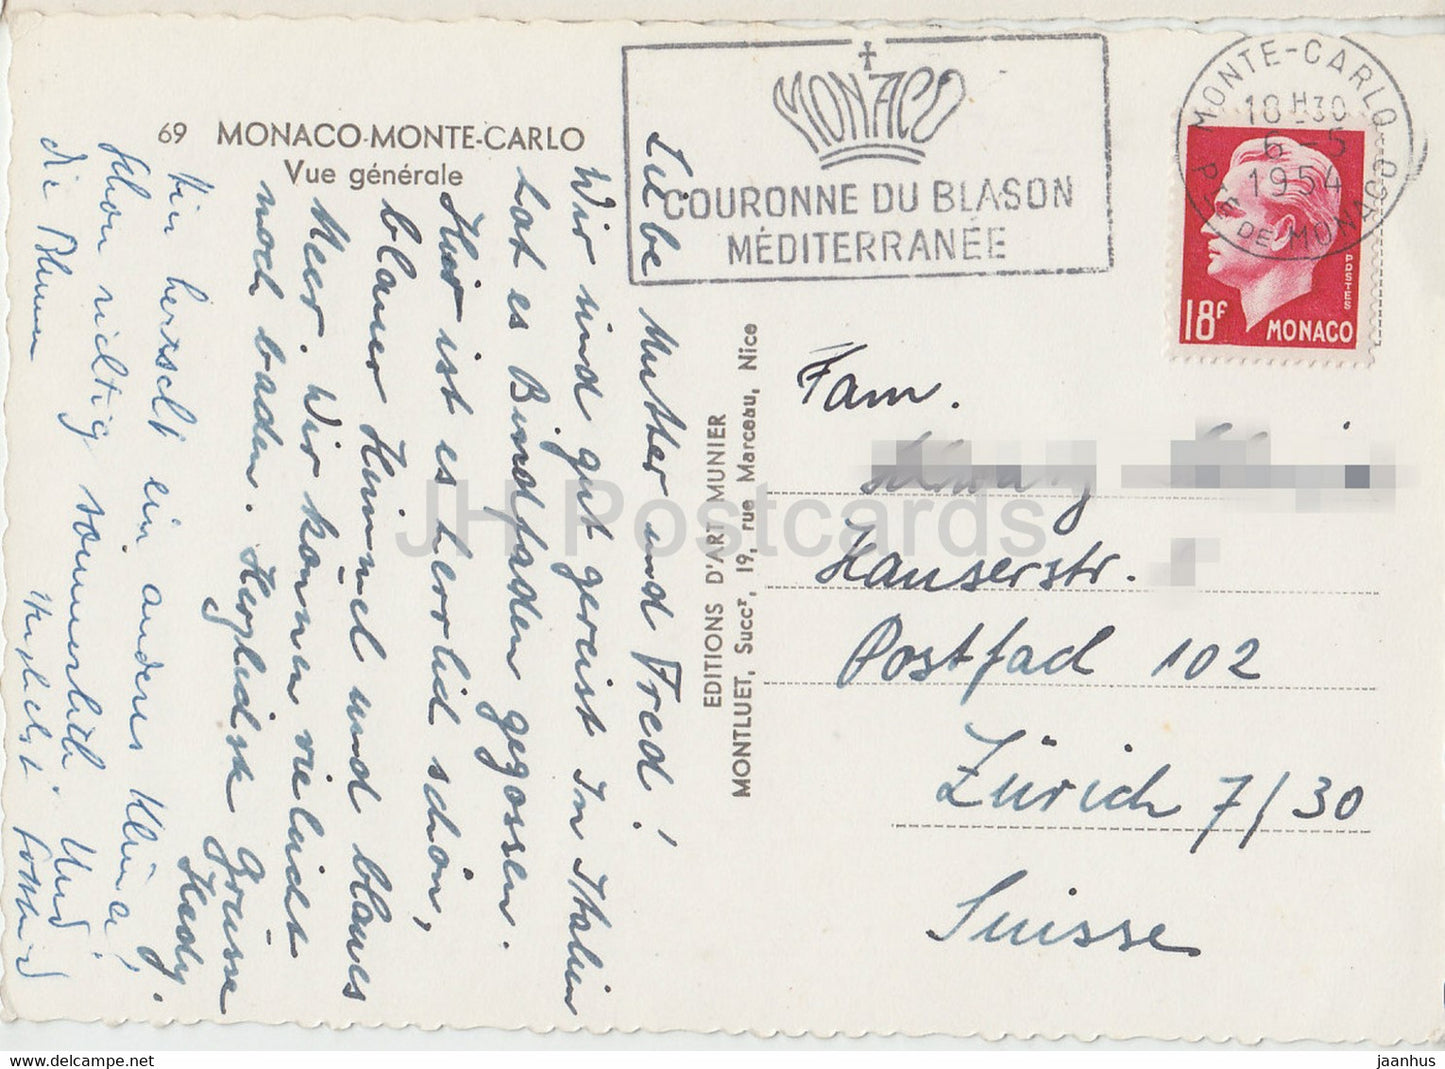 69 MONACO-MONTE-CARLO
Vue générale
MONACO
COURONNE DU BLASON
MÉDITERRANÉE
MONTE-CARLO
18 H 30
6 - 5
1954
PTÉ DE MONACO
POSTES
18F MONACO
EDITIONS D'ART MUNIER
MONTLUET, Succr, 19, rue Marceau, Nice
Liebe Mutter und Fred!
Wir sind gut gereist In Italien
hat es Bindfaden gegossen.
Hier ist es herrlich schön,
blauer Himmel und blaues
Meer. Wir können vielleicht
noch baden. Herzliche Grüsse
Hedy.
Hier herrscht ein anderes Klima!
Schon richtig sommerlich. Und
die Blumen
Fam.
Hauserstr.
Postfach 102
Zürich 7/30
Suisse
JH Postcards
www.delcampe.net
jaanhus